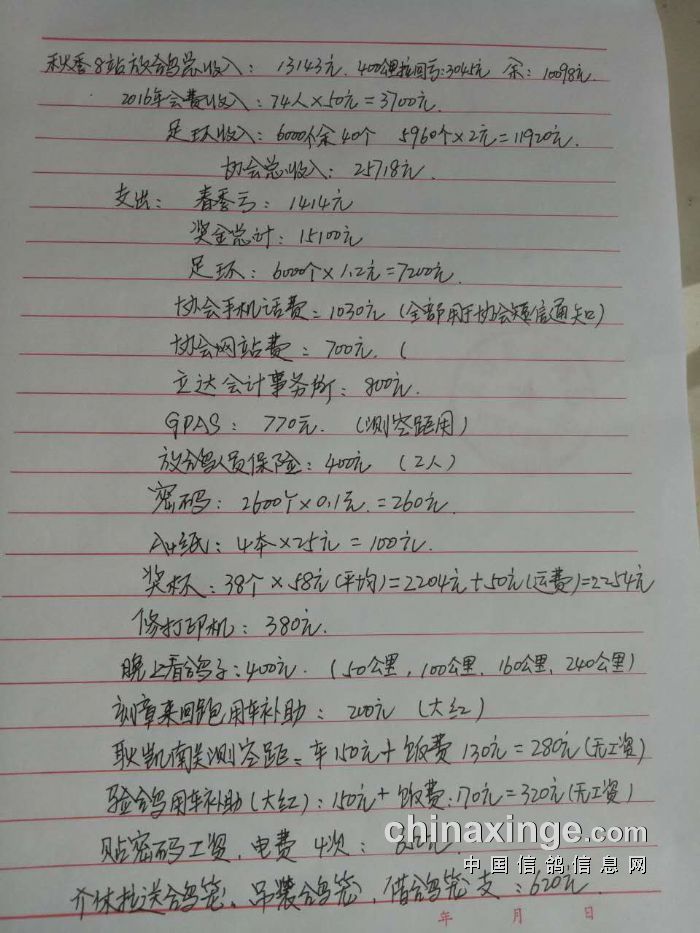 秋季8站放鸽总收入：13143元．400公里拉回亏：3045元 余：10098元．
2016年会费收入：74人×50元＝3700元．
足环收入：6000个余40个 5960个×2元＝11920元．
协会总收入：25718元．
支出：春季亏：1414元
奖金总计：15100元
足环：6000个×1.2元＝7200元．
协会手机话费：1030元（全部用于协会短信通知）
协会网站费：700元．（
立达会计事务所：800元．
GPAS：770元．（测空距用）
放鸽人员保险：400元（2人）
密码：2600个×0.1元．＝260元
A4纸：4本×25元＝100元．
奖杯：38个×58元(平均)＝2204元＋50元(运费)＝2254元
修打印机：380元．
晚上看鸽子：400元．（50公里，100公里．160公里．240公里）
刻章来回跑用车补助：200元（大红）
耿凯南关测空距：车150元＋饭费130元＝280元(无工资)
验鸽用车补助(大红)：150元＋饭费：170元＝320元(无工资)
贴密码工资．电费4次：元
拉送鸽笼、吊装鸽笼，借鸽笼支：620元．
年 月 日
chinaxinge.com
中国信鸽信息网